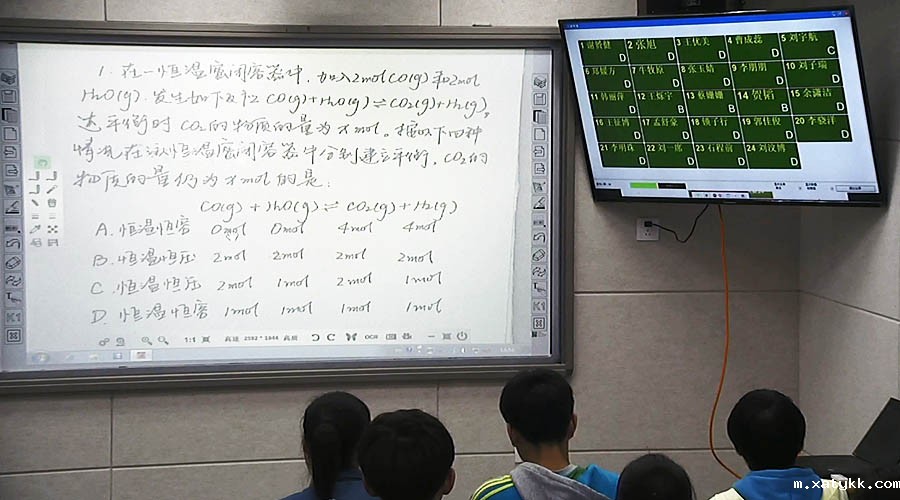 1. 在一恒温密闭容器中，加入2molCO(g)和2mol
H₂O(g).发生如下反应CO(g)+H₂O(g)⇌CO₂(g)+H₂(g),
达平衡时CO₂的物质的量为xmol。按以下四种
情况,在该恒温密闭容器中分别建立平衡，CO₂的
物质的量仍为xmol的是:
CO(g) + H₂O(g) ⇌ CO₂(g) + H₂(g)
A. 恒温恒容 0mol 0mol 4mol 4mol
B. 恒温恒压 2mol 2mol 2mol 2mol
C. 恒温恒压 2mol 1mol 2mol 1mol
D. 恒温恒容 1mol 1mol 1mol 1mol
1:1 高速 2592 * 1944 高质 OCR
K1
K1
2 张旭 D
3 王优美 D
4 曹成蕊 D
5 刘宇航 C
D
7 牛牧原 D
8 张玉婧 D
9 李朋朋 D
10 刘子瑞 D
11 韩丽萍 D
12 王烁宇 D
13 蔡姗姗 B
14 贺韬 B
15 余潇洁 D
16 王征博 D
17 孟舒豪 D
D
19 郭佳俊 D
20 李晓洋 D
21 李明珠 D
22 刘一席 D
23 石程前 D
24 刘汶博 D
m.xatykk.com